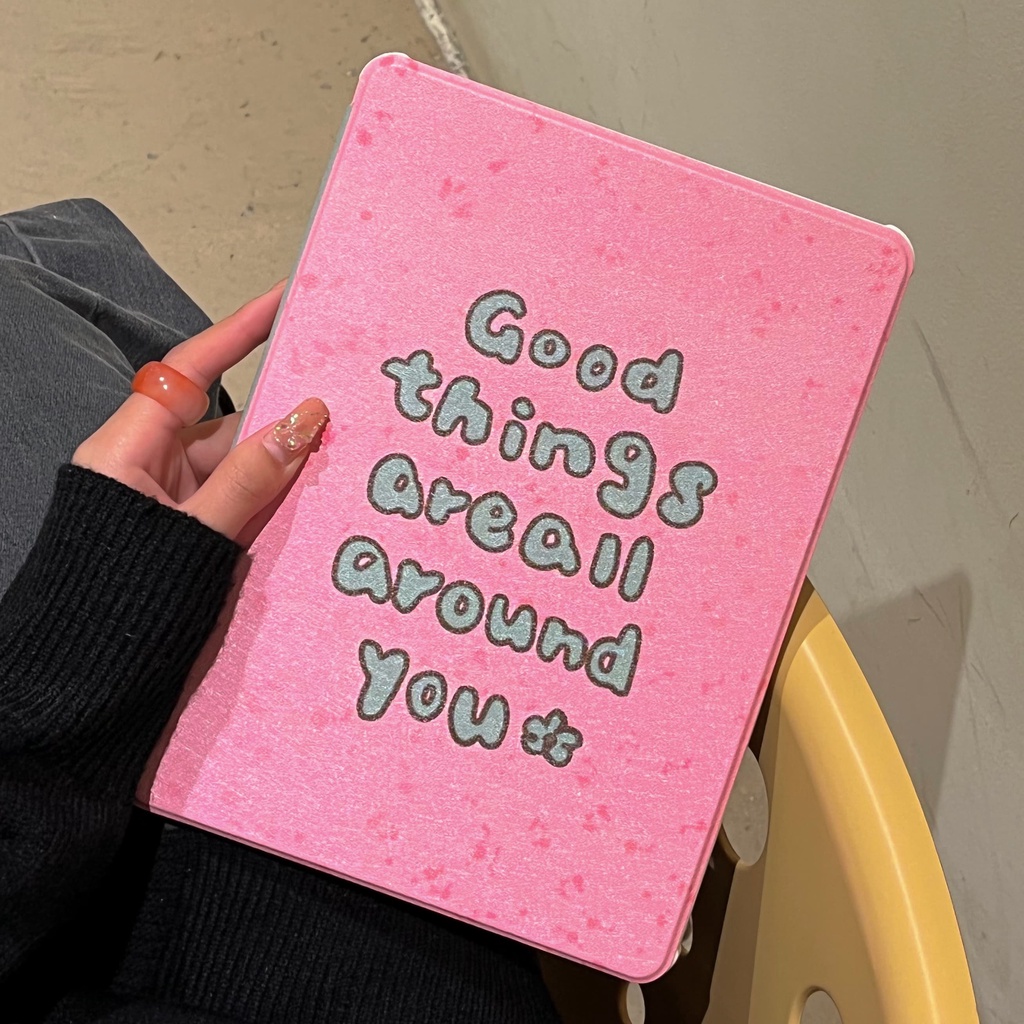 Good
things
areall
around
you